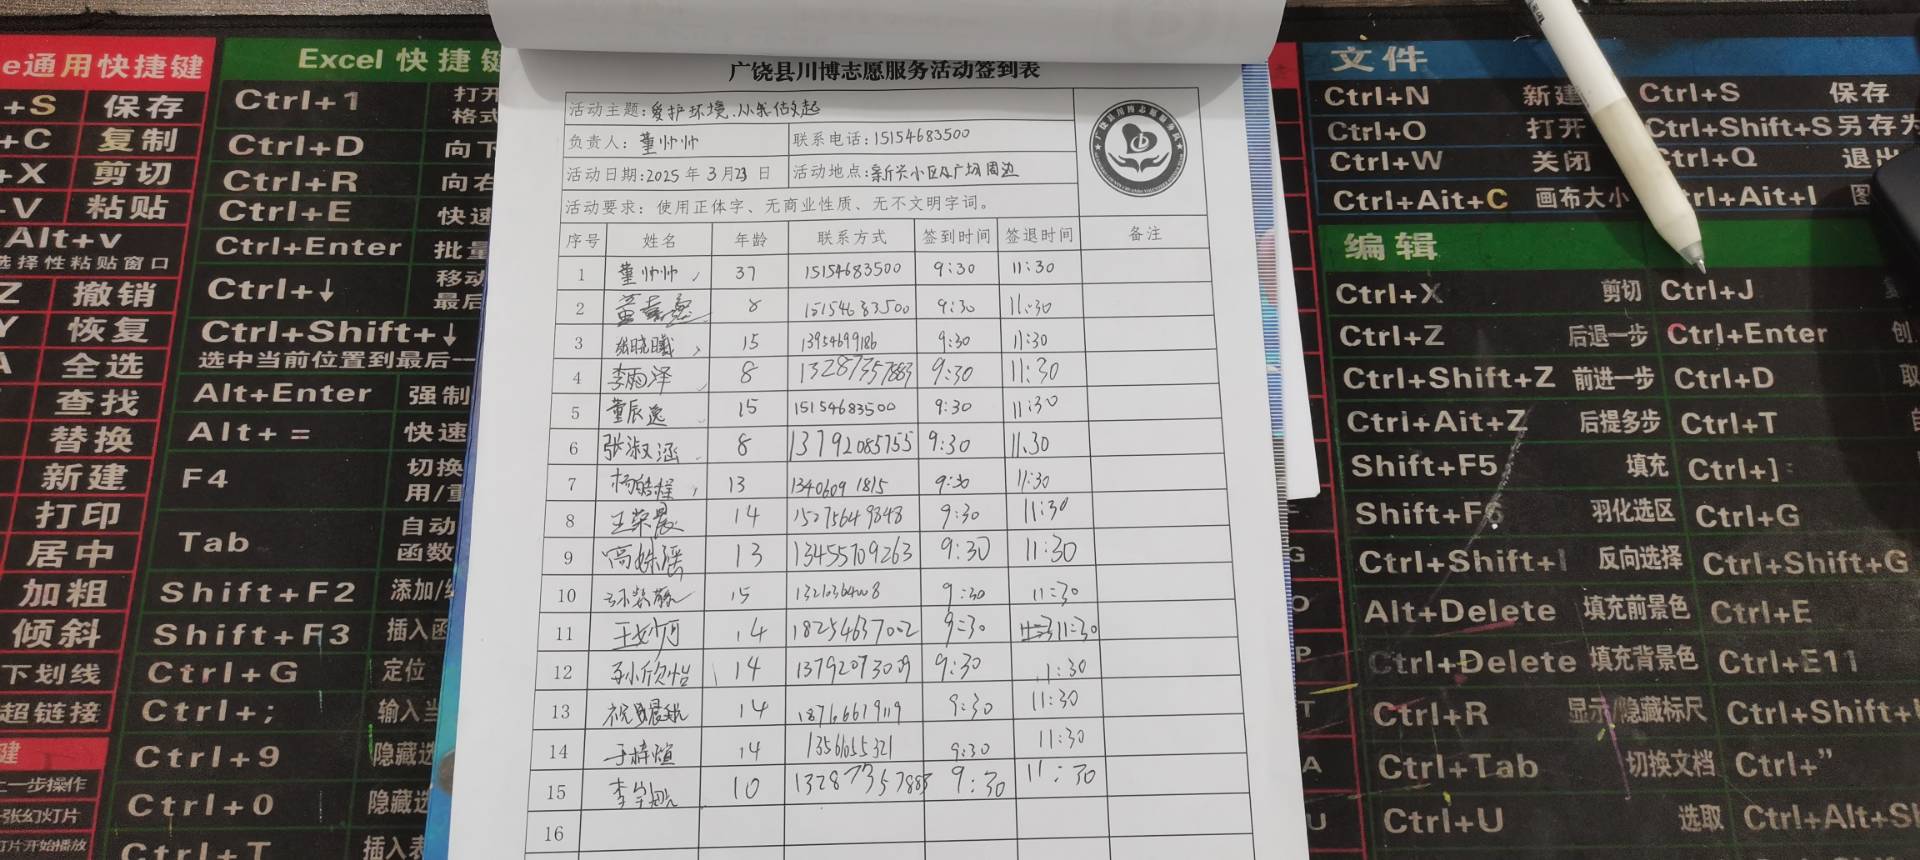 e通用快捷键
+S 保存
+C 复制
+X 剪切
+V 粘贴
Alt+v
选择性粘贴窗口
Z 撤销
Y 恢复
A 全选
查找
替换
新建
打印
居中
加粗
倾斜
下划线
超链接
键
上一步操作
张幻灯片
灯片开始播放
Excel 快捷键
Ctrl+1 打开 格式
Ctrl+D 向下
Ctrl+R 向右
Ctrl+E 快速
Ctrl+Enter 批量
Ctrl+↓ 移动 最后
Ctrl+Shift+↓
选中当前位置到最后一
Alt+Enter 强制
Alt+= 快速
F4 切换 用/重
Tab 自动 函数
Shift+F2 添加/
Shift+F3 插入函
Ctrl+G 定位
Ctrl+; 输入当
Ctrl+9 隐藏选
Ctrl+0 隐藏选
Ctrl+T 插入表
广饶县川博志愿服务活动签到表
活动主题:爱护环境,从我做起
负责人: 董帅帅 联系电话:15154683500
活动日期:2025年3月23日 活动地点:新兴小区及广场周边
活动要求: 使用正体字、无商业性质、无不文明字词。
序号 姓名 年龄 联系方式 签到时间 签退时间 备注
1 董帅帅 37 15154683500 9:30 11:30
2 8 15154683500 9:30 11:30
3 张晓曦 15 13954699186 9:30 11:30
4 李雨泽 8 13287357883 9:30 11:30
5 董辰逸 15 15154683500 9:30 11:30
6 张淑涵 8 13792085755 9:30 11.30
7 杨皓程 13 13406091815 9:30 11:30
8 王荣晨 14 15275649848 9:30 11:30
9 高姝瑶 13 13455709263 9:30 11:30
10 15 9:30 11:30
11 王妙可 14 18254637002 9:30 11:30
12 孙欣怡 14 13792073009 9:30 1:30
13 14 18766619119 9:30 11:30
14 于梓煊 14 9:30 11:30
15 李宇航 10 13287357883 9:30 11:30
16
文件
Ctrl+N 新建 Ctrl+S 保存
Ctrl+O 打开 Ctrl+Shift+S 另存为
Ctrl+W 关闭 Ctrl+Q 退出
Ctrl+Ait+C 画布大小 trl+Ait+I 图
编辑
Ctrl+X 剪切 Ctrl+J
Ctrl+Z 后退一步 Ctrl+Enter 创
Ctrl+Shift+Z 前进一步 Ctrl+D 取
Ctri+Ait+Z 后提多步 Ctrl+T 自
Shift+F5 填充 Ctrl+]
Shift+F6 羽化选区 Ctrl+G
Ctrl+Shift+I 反向选择 Ctrl+Shift+G
Alt+Delete 填充前景色 Ctrl+E
Ctrl+Delete 填充背景色 Ctrl+E11
Ctrl+R 显示/隐藏标尺 Ctrl+Shift+
Ctrl+Tab 切换文档 Ctrl+”
Ctrl+U 选取 Ctrl+Alt+S